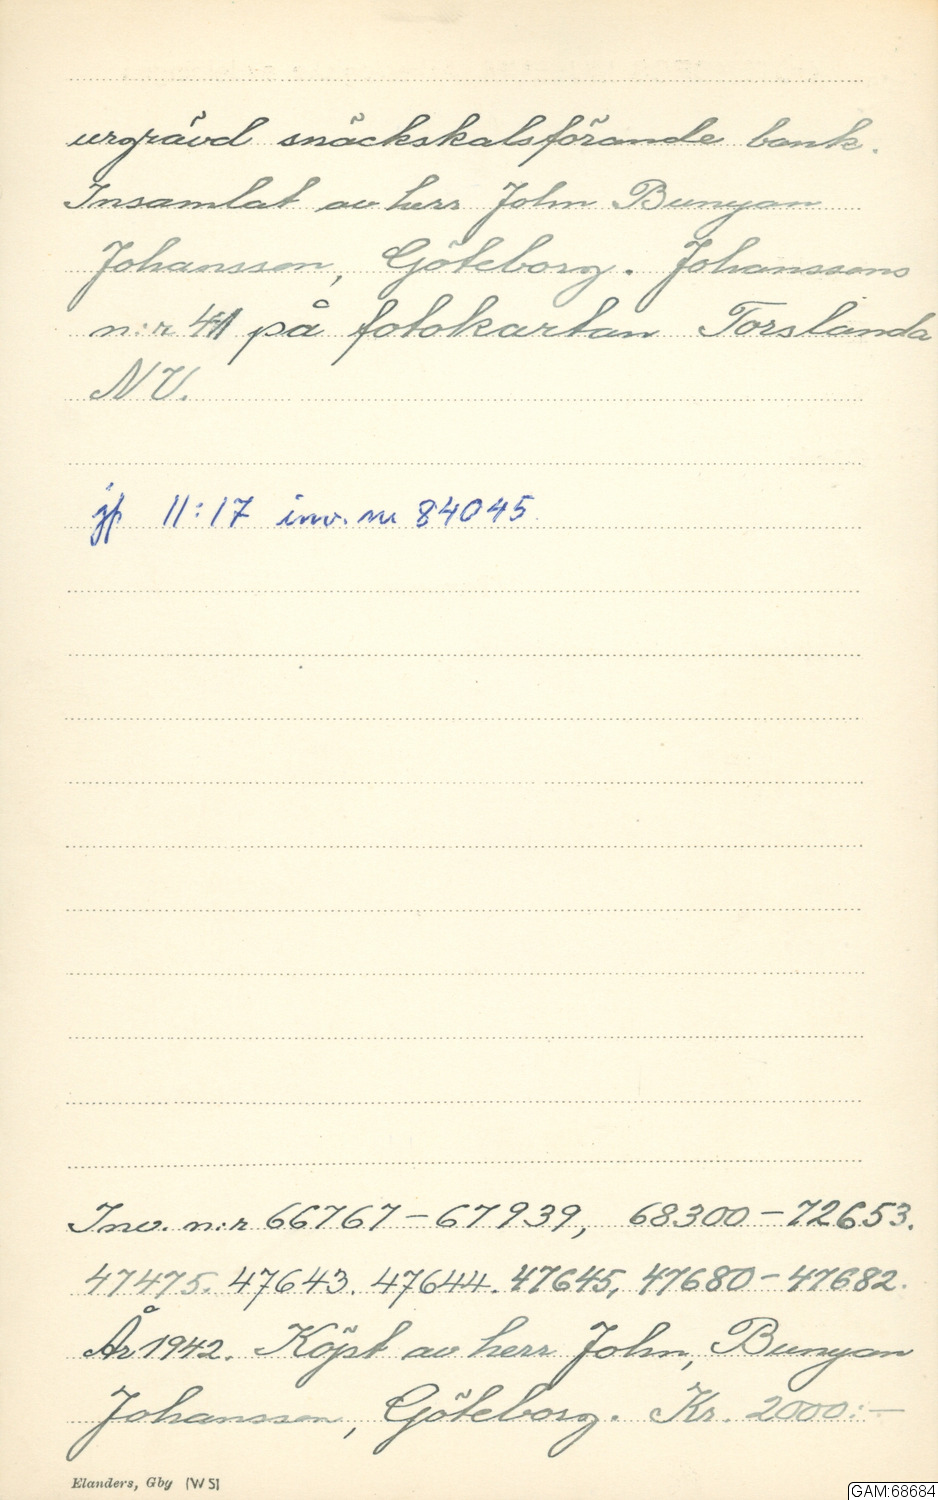 urgrävd snäckskalsförande bank.
Insamlat av herr John Bunyan
Johansson, Göteborg. Johanssons
n:r 41 på fotokartan Torslanda
NV.
jf 11:17 inv. nr 84045
Inv. n:r 66767-67939, 68300-72653.
47475. 47643. 47644. 47645, 47680-47682.
År 1942. Köpt av herr John, Bunyan
Johansson, Göteborg. Kr. 2000:-
Elanders, Gby (W 5)
GAM:68684